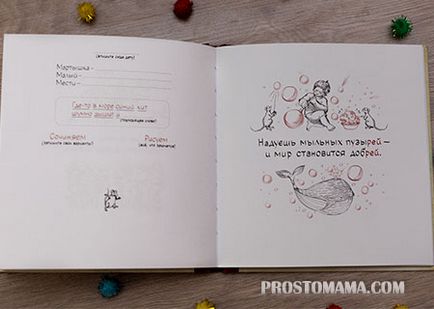 (впишите сюда дату)
Мартышка –
Малый –
Мести –
Где-то в море синий кит
шумно дышит и
(подходящее слово)
Сочиняем
(запишите свои варианты)
Рисуем
(всё, что захочется)
Надуешь мыльных пузырей –
и мир становится добрей.
PROSTOMAMA.COM